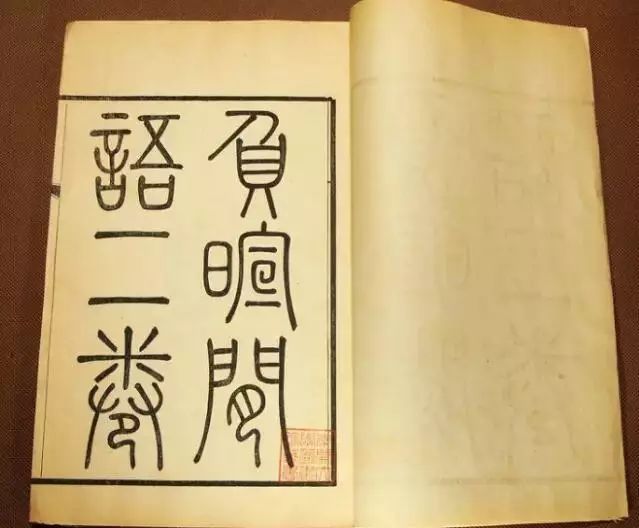 負暄閒
語二卷